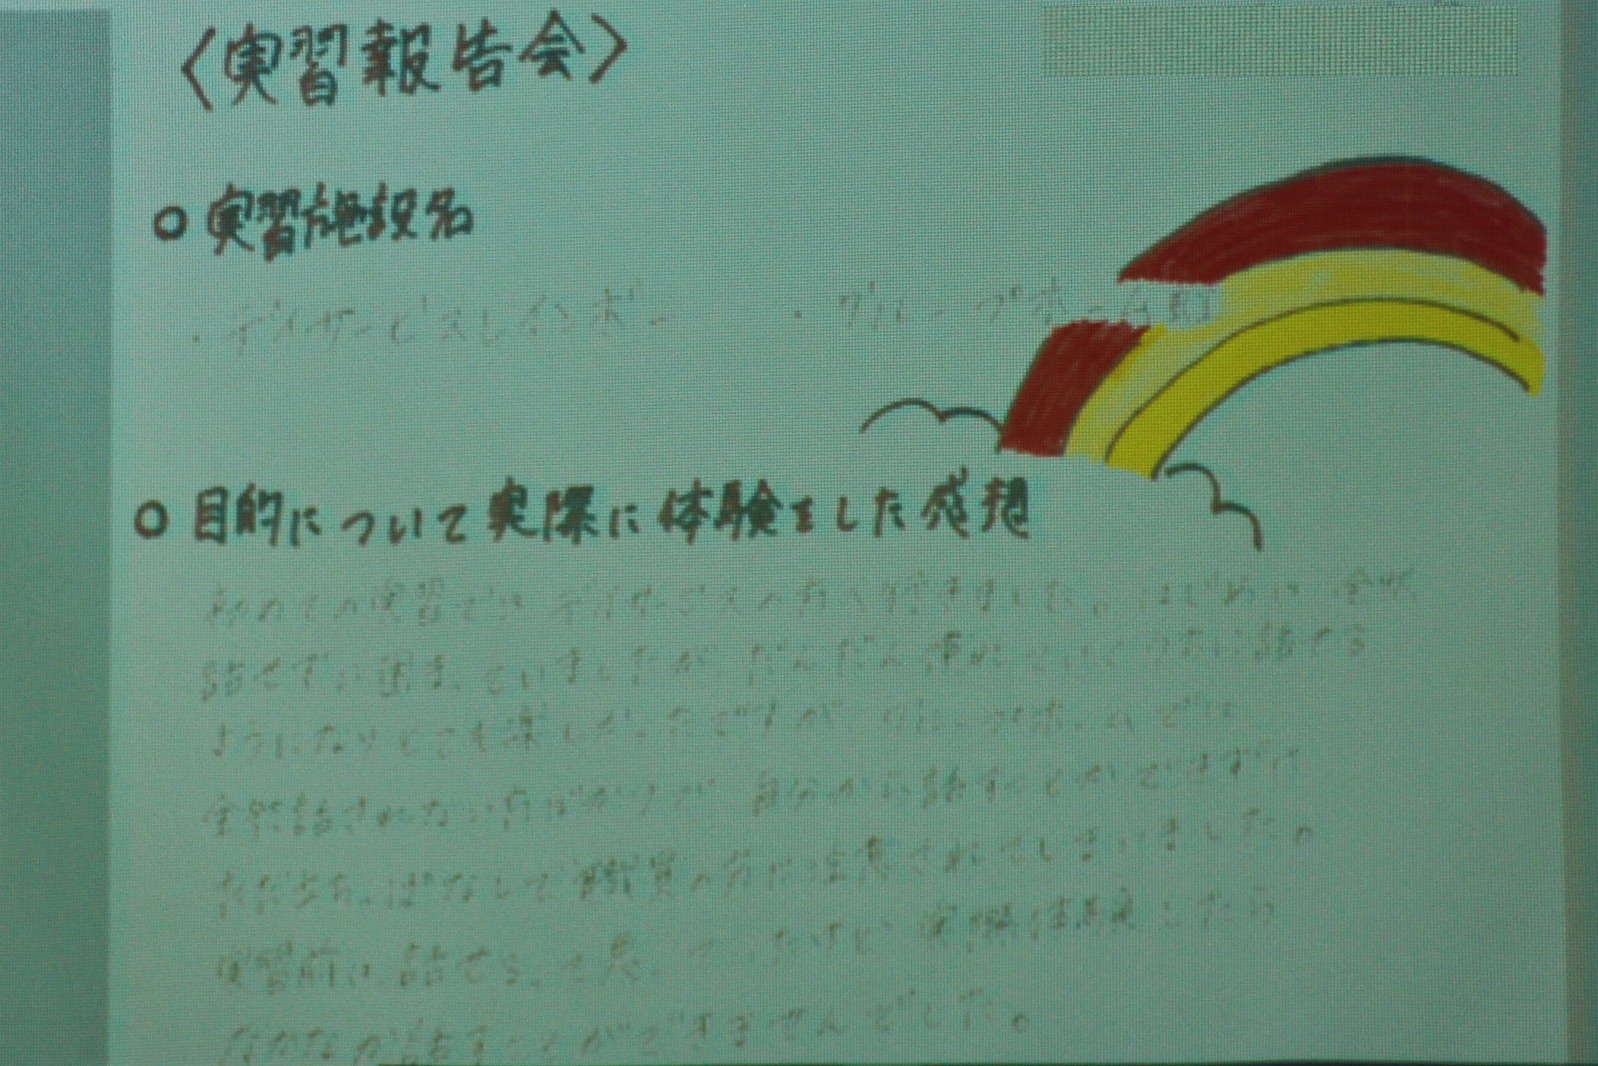 〈実習報告会〉
○ 実習施設名
・デイサービスレインボー ・グループホーム
○ 目的について実際に体験をした感想
初めての実習ではデイサービスの方へ行きました。はじめは全然
話せずに困っていましたが、だんだん慣れていくうちに話せる
ようになりとても楽しかったですが、グループホームでは
全然話されない方ばかりで自分から話すことができずに
ただ立ちっぱなしで職員の方に注意されてしまいました。
実習前は話せると思っていたけど実際体験したら
なかなか話すことができませんでした。